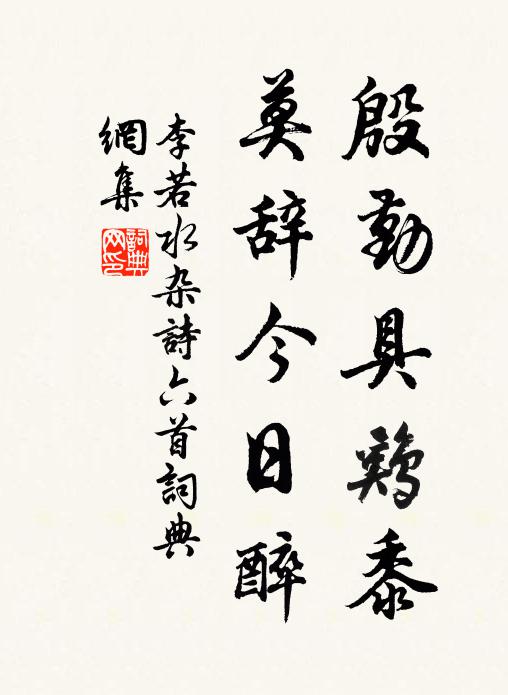 殷勤具鷄黍
莫辞今日醉
李若水杂詩六首詞典
網集
詞典
网印